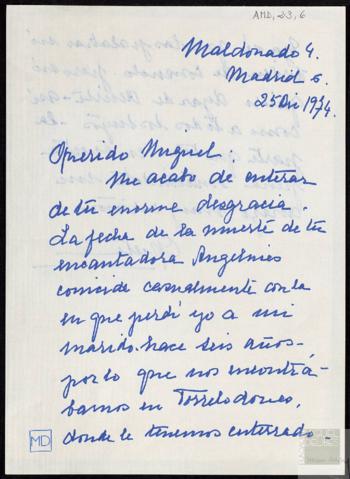 AMD, 23, 6
Maldonado 4.
Madrid 6.
25 Dic 1974.
Querido Miguel:
Me acabo de enterar
de tu enorme desgracia.
La fecha de la muerte de tu
encantadora Angelines
coincide casualmente con la
en que perdí yo a mi
marido hace seis años-
por lo que nos encontrá-
bamos en Torrelodones,
donde le tenemos enterrado
MD